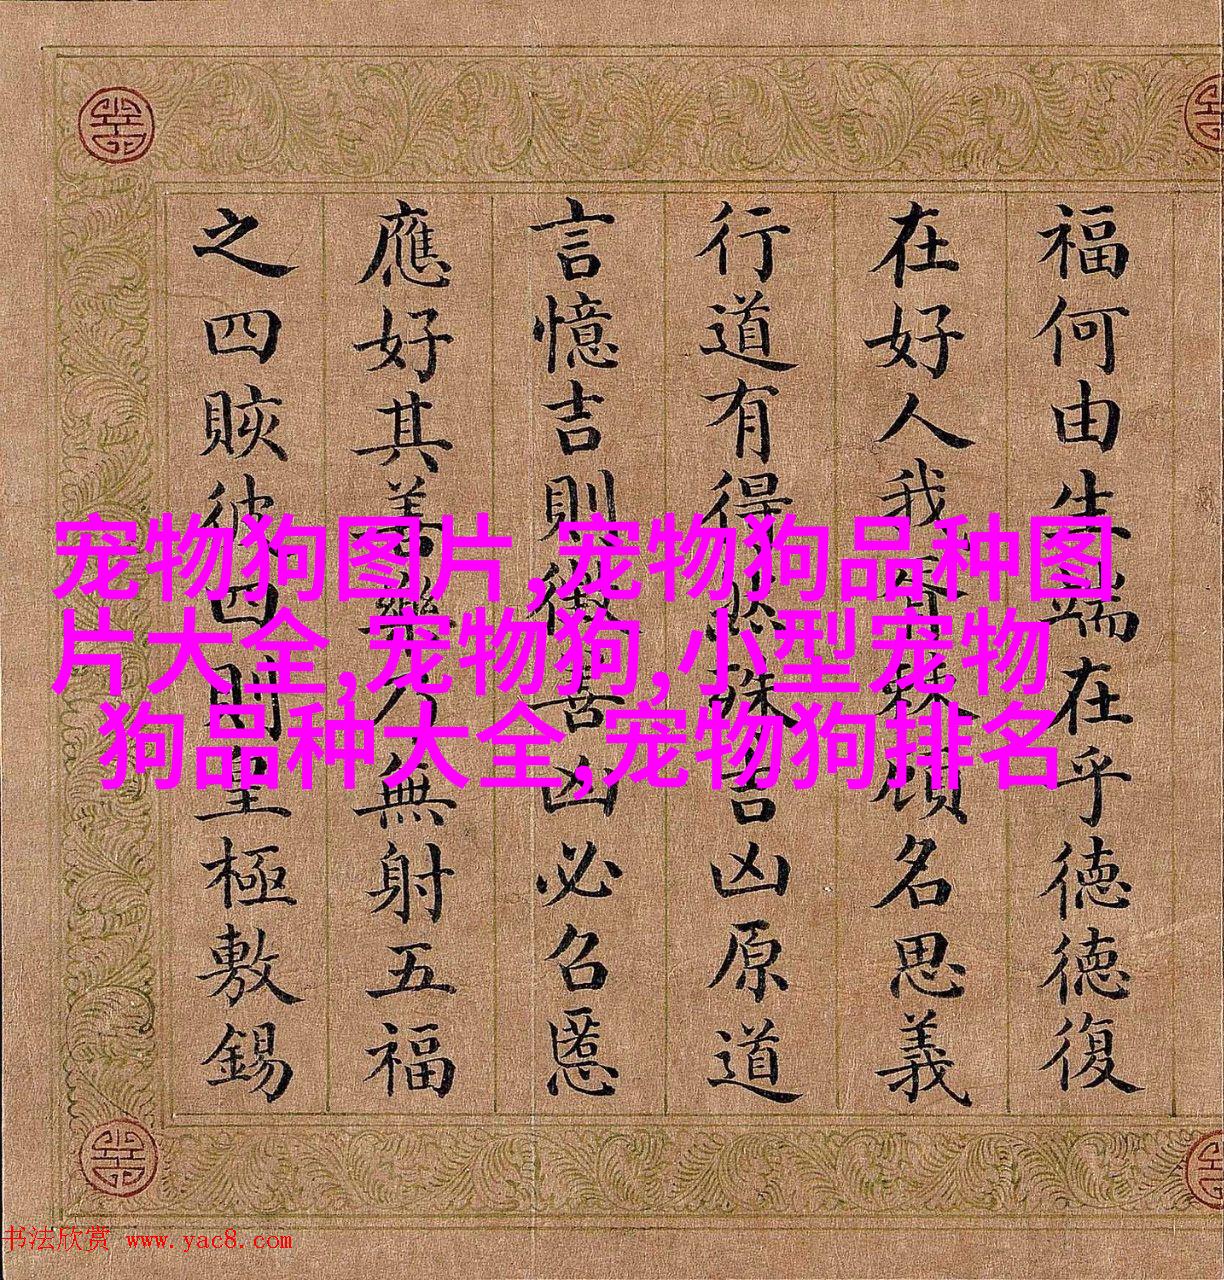 福何由生端在乎徳徳復
在好人我顧名思義
行道有得殊吉凶原道
言憶吉則徵善凶必召慝
應好其善樂乃無射五福
之四賅彼四則皇極敷錫
宠物狗图片,宠物狗品种图
片大全,宠物狗,小型宠物
狗品种大全,宠物狗排名
书法欣赏 www.yac8.com